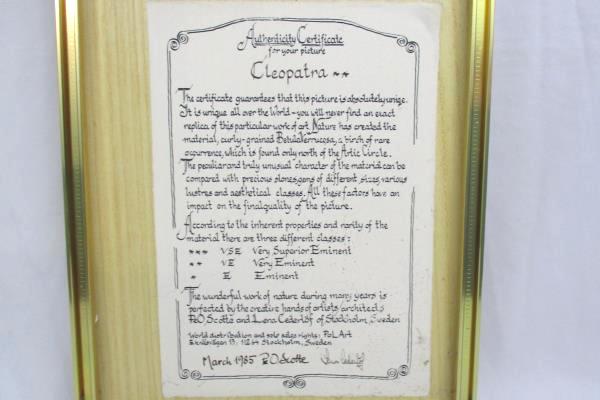 Authenticity Certificate
for your picture
Cleopatra **
The certificate guarantees that this picture is absolutely unige.
It is unique all over the World - you will never find an exact
replica of this particular work of art. Nature has created the
material, curly-grained Betula Verrucosa, a birch of rare
occurrence, which is found only north of the Artic Circle.
The peculiar and truly unusual character of the material can be
compared with precious stones, gems of different sizes, various
lustres and aesthetical classes. All these factors have an
impact on the final quality of the picture.
According to the inherent properties and rarity of the
material there are three different classes:
*** VSE Very Superior Eminent
** VE Very Eminent
* E Eminent
The wunderful work of nature during many years is
perfected by the creative hands of artists/architects
P.O. Scotte and Lena Cederlöf of Stockholm, Sweden
World distribution and sole sales rights: PoL Art
13, 112 64 Stockholm, Sweden
March 1985 P.O Scotte Lena Cederlöf